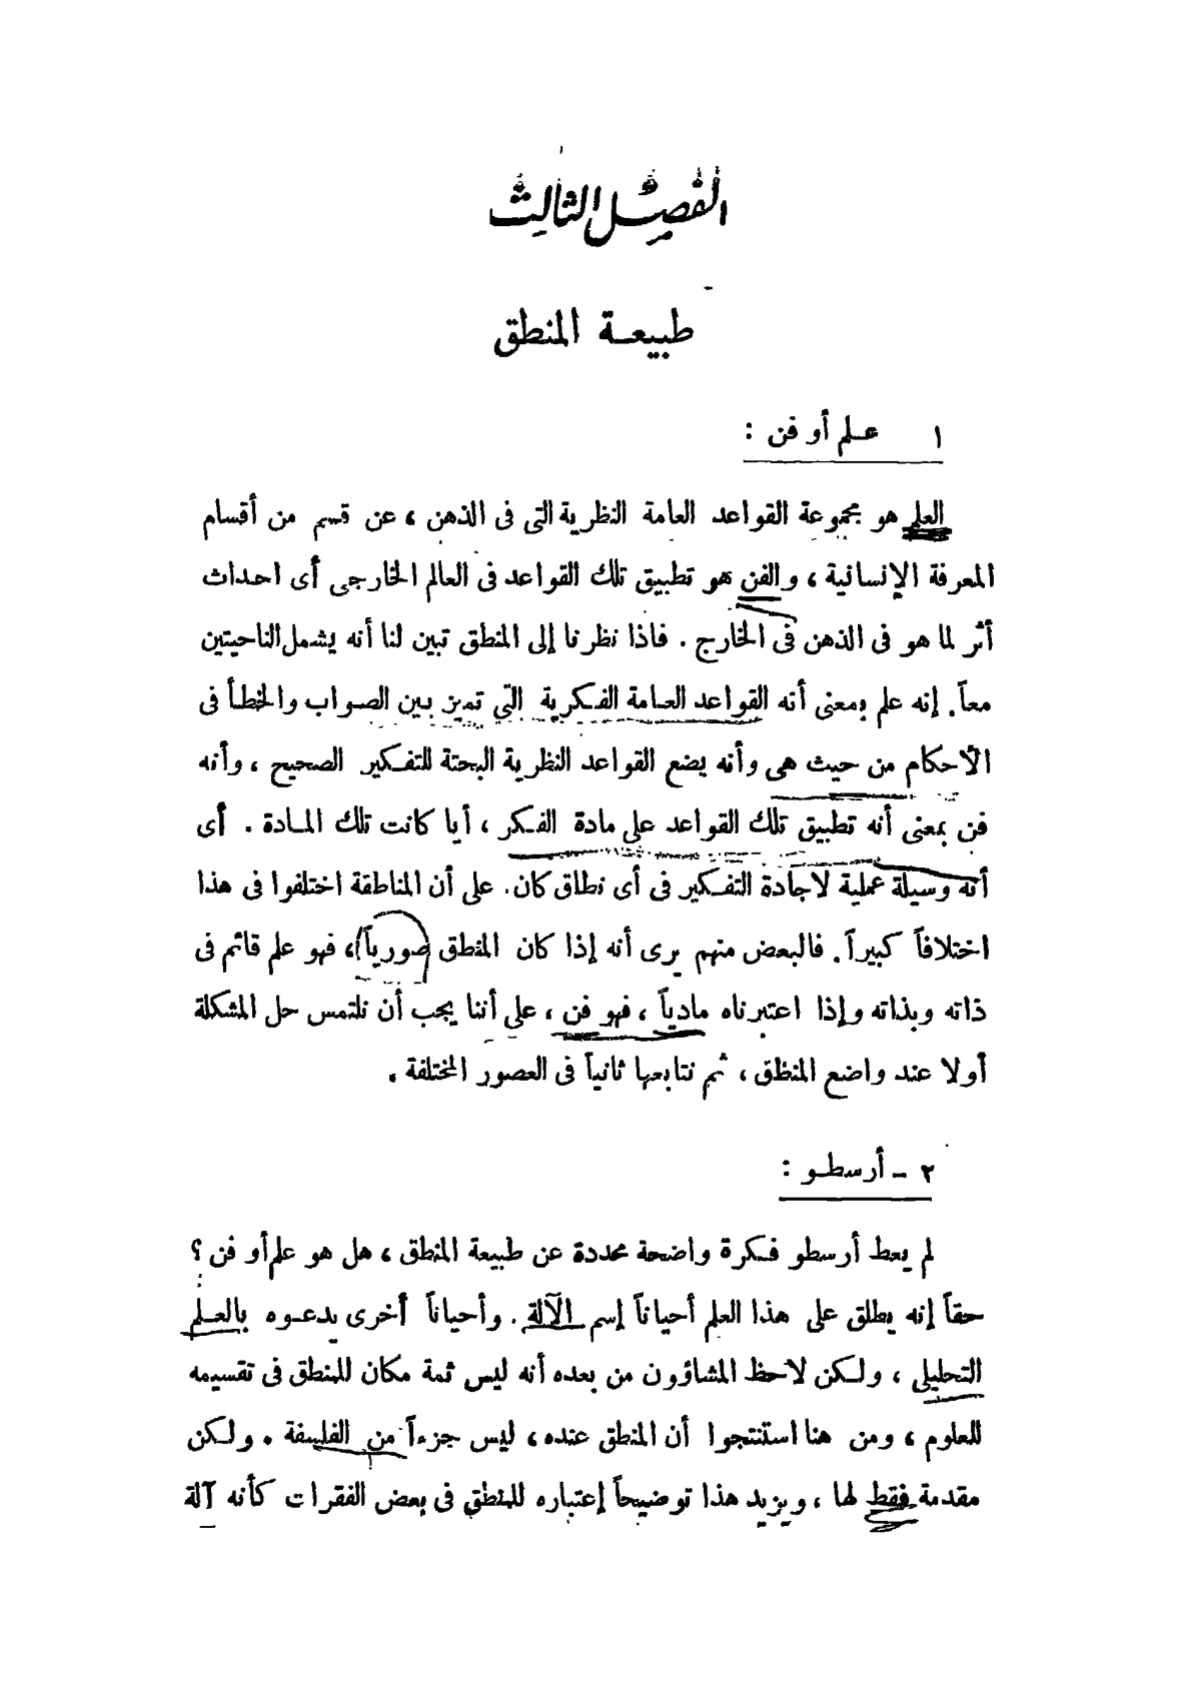 الفصل الثالث
طبيعة المنطق
١ علم أو فن :
العلم هو مجموعة القواعد العامة النظرية التى فى الذهن ، عن قسم من أقسام
المعرفة الإنسانية ، والفن هو تطبيق تلك القواعد فى العالم الخارجى أى احداث
أثر لما هو فى الذهن فى الخارج . فاذا نظرنا إلى المنطق تبين لنا أنه يشمل الناحيتين
معاً . إنه علم بمعنى أنه القواعد العامة الفكرية التي تميز بين الصواب والخطأ فى
الأحكام من حيث هى وأنه يضع القواعد النظرية البحتة للتفكير الصحيح ، وأنه
فن بمعنى أنه تطبيق تلك القواعد على مادة الفكر ، أيا كانت تلك المادة . أى
أنه وسيلة عملية لاجادة التفكير فى أى نطاق كان . على أن المناطقة اختلفوا فى هذا
اختلافاً كبيراً . فالبعض منهم يرى أنه إذا كان المنطق صورياً ، فهو علم قائم فى
ذاته وبذاته وإذا اعتبرناه مادياً ، فهو فن ، على أننا يجب أن نلتمس حل المشكلة
أولا عند واضع المنطق ، ثم نتابعها ثانياً فى العصور المختلفة .
٢ - أرسطو :
لم يعط أرسطو فكرة واضحة محددة عن طبيعة المنطق ، هل هو علم أو فن ؟
حقاً إنه يطلق على هذا العلم أحياناً إسم الآلة . وأحياناً أخرى يدعوه بالعلم
التحليلى ، ولكن لاحظ المشاؤون من بعده أنه ليس ثمة مكان للمنطق فى تقسيمه
للعلوم ، ومن هنا استنتجوا أن المنطق عنده ، ليس جزءاً من الفلسفة . ولكن
مقدمة فقط لها ، ويزيد هذا توضيحاً إعتباره للمنطق فى بعض الفقرات كأنه آلة